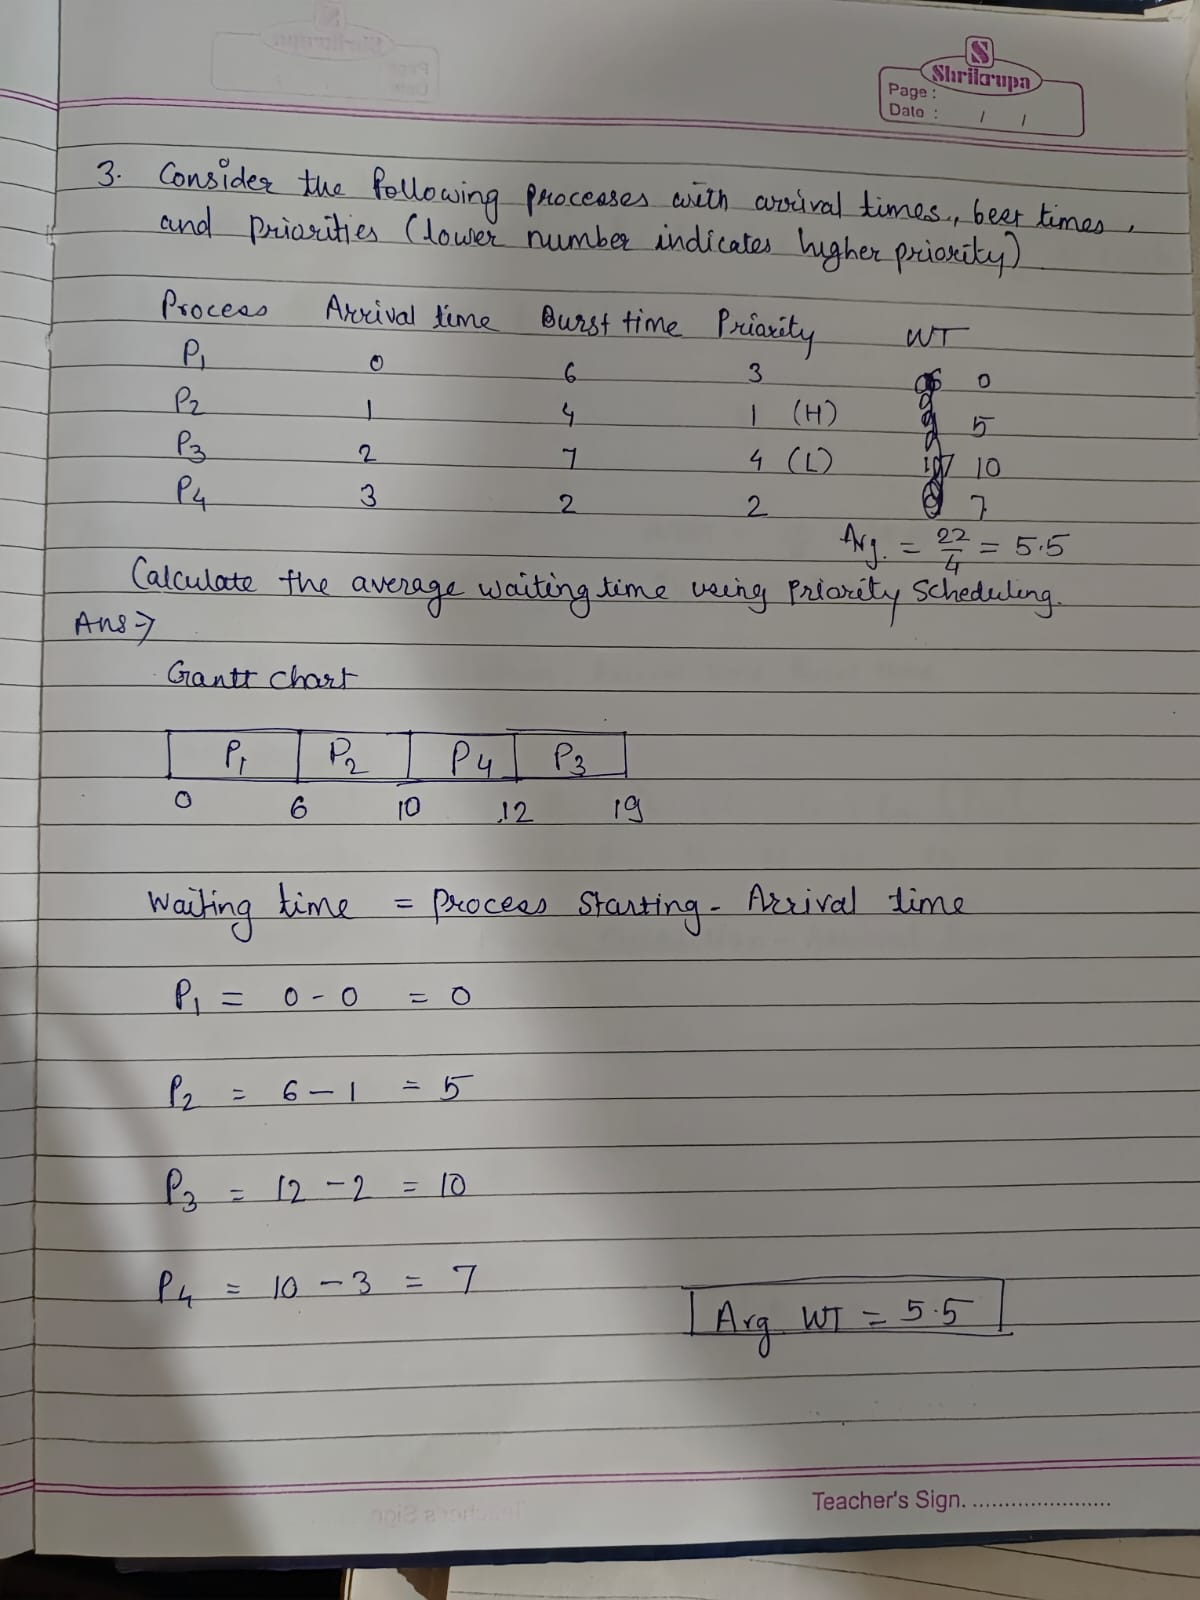 Shrikrupa
Page :
Date : / /
3. Consider the following processes with arrival times, best times,
and priorities (lower number indicates higher priority)
Process Arrival time Burst time Priority WT
P1 0 6 3 0
P2 1 4 1 (H) 5
P3 2 7 4 (L) 10
P4 3 2 2 7
Avg. = 22/4 = 5.5
Calculate the average waiting time using Priority Scheduling.
Ans →
Gantt chart
P1 P2 P4 P3
0 6 10 12 19
Waiting time = process starting - Arrival time
P1 = 0 - 0 = 0
P2 = 6 - 1 = 5
P3 = 12 - 2 = 10
P4 = 10 - 3 = 7
Avg WT = 5.5
Teacher's Sign. ......................